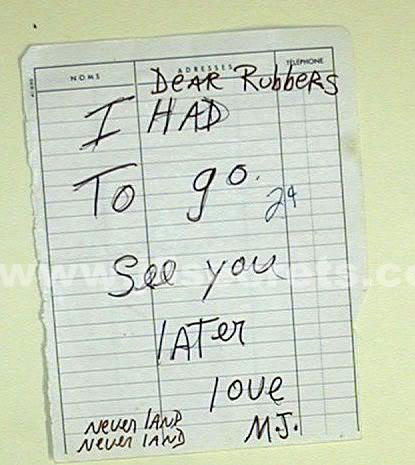 NOMS ADRESSES TÉLÉPHONE
DEAR RubbeRS
I HAD
To go.
See you
lATer
love
Never lAND
Never lAND
M.J.